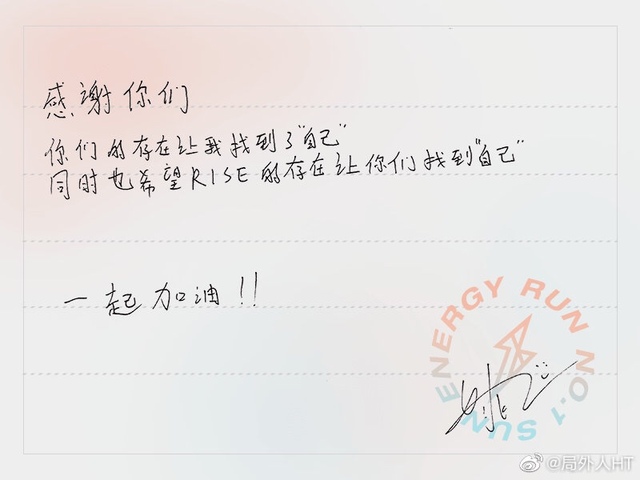 感谢你们
你们的存在让我找到了"自己"
同时也希望RISE的存在让你们找到"自己"
一起加油!!
ENERGY RUN NO.1 SUN
@局外人HT